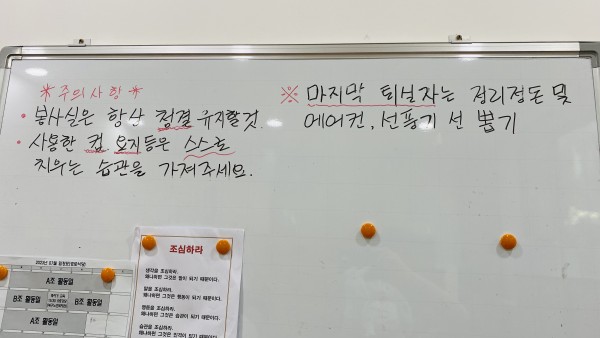 * 주의사항 *
• 봉사실은 항상 청결 유지할것.
• 사용한 컵. 오지등은 스스로
치우는 습관을 가져주세요.
※ 마지막 퇴실자는 정리정돈 및
에어컨, 선풍기 선 뽑기
A조 활동일
B조 활동일
B조 활동일
A조 활동일
조심하라
생각을 조심하라.
왜냐하면 그것은 말이 되기 때문이다.
말을 조심하라.
왜냐하면 그것은 행동이 되기 때문이다.
행동을 조심하라.
왜냐하면 그것은 습관이 되기 때문이다.
습관을 조심하라.
왜냐하면 그것은 인격이 되기 때문이다.